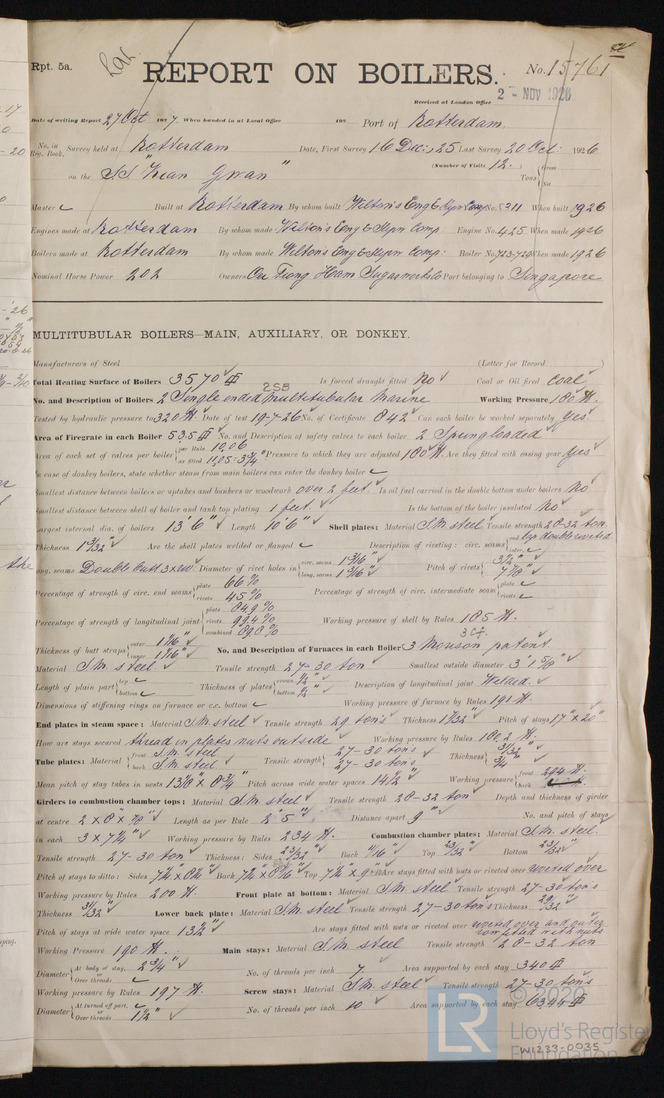 Rpt. 5a.
REPORT ON BOILERS.
No. 15761
Received at London Office
2 - NOV 1926
Date of writing Report 27 Oct 192 When handed in at Local Office 192 Port of Rotterdam
No. in Reg. Book. Survey held at Rotterdam Date, First Survey 16 Dec. 25 Last Survey 20 Oct. 1926
(Number of Visits 12.)
on the SS "Kian Gwan" Tons
Master Built at Rotterdam By whom built Wilton's Eng & Slipw Comp No. When built 1926
Engines made at Rotterdam By whom made Wilton's Eng & Slipw Comp Engine No. 425 When made 1926
Boilers made at Rotterdam By whom made Wilton's Eng & Slipw Comp: Boiler No. When made 1926
Nominal Horse Power 202 Owners Oei Tiong Ham Sugarworks Port belonging to Singapore
MULTITUBULAR BOILERS—MAIN, AUXILIARY, OR DONKEY.
Manufacturers of Steel (Letter for Record )
Total Heating Surface of Boilers 3570 Is forced draught fitted No Coal or Oil fired Coal
2SB
No. and Description of Boilers 2 Single ended multitubular marine Working Pressure 180
Tested by hydraulic pressure to 320 Date of test 19-7-26 No. of Certificate 842 Can each boiler be worked separately Yes
Area of Firegrate in each Boiler 53.5 No. and Description of safety valves to each boiler 2 Spring loaded
Area of each set of valves per boiler per Rule as fitted Pressure to which they are adjusted Are they fitted with easing gear Yes
In case of donkey boilers, state whether steam from main boilers can enter the donkey boiler
Smallest distance between boilers or uptakes and bunkers or woodwork over 2 feet Is oil fuel carried in the double bottom under boilers No
Smallest distance between shell of boiler and tank top plating 1 feet Is the bottom of the boiler insulated No
Largest internal dia. of boilers 13'6" Length 10'6" Shell plates: Material S.M. steel Tensile strength 28-32 ton
Thickness 1 3/32" Are the shell plates welded or flanged Description of riveting: circ. seams end lap double riveted inter.
long. seams Double butt Diameter of rivet holes in circ. seams 1 3/16" long. seams 1 3/16" Pitch of rivets
Percentage of strength of circ. end seams plate 66% rivets 45% Percentage of strength of circ. intermediate seam plate rivets
Percentage of strength of longitudinal joint plate 84.9% rivets combined Working pressure of shell by Rules 185
Thickness of butt straps outer 1 1/16" inner 1 1/16" No. and Description of Furnaces in each Boiler 3 Morison patent
Material S.M. steel Tensile strength 27-30 ton Smallest outside diameter
Length of plain part top bottom Thickness of plates crown bottom 1/2" Description of longitudinal joint Welded
Dimensions of stiffening rings on furnace or c.c. bottom Working pressure of furnace by Rules 191
End plates in steam space: Material S.M. steel Tensile strength 29 tons Thickness Pitch of stays 17" x 20"
How are stays secured thread in plates nuts outside Working pressure by Rules
Tube plates: Material front S.M. steel back S.M. steel Tensile strength 27-30 tons 27-30 tons Thickness 3/4"
Mean pitch of stay tubes in nests Pitch across wide water spaces 14 1/2" Working pressure front back
Girders to combustion chamber tops: Material S.M. steel Tensile strength 28-32 ton Depth and thickness of girder
at centre Length as per Rule 2'5" Distance apart 9" No. and pitch of stays
in each 3 x 7 1/4" Working pressure by Rules 234 Combustion chamber plates: Material S.M. steel
Tensile strength 27-30 ton Thickness: Sides 23/32" Back 11/16" Top 23/32" Bottom 23/32"
Pitch of stays to ditto: Sides Back Top Are stays fitted with nuts or riveted over riveted over
Working pressure by Rules 200 Front plate at bottom: Material S.M. steel Tensile strength 27-30 tons
Thickness 31/32" Lower back plate: Material S.M. steel Tensile strength 27-30 tons Thickness 29/32"
Pitch of stays at wide water space 13 1/2" Are stays fitted with nuts or riveted over riveted over and outer
Working Pressure 190 Main stays: Material S.M. steel Tensile strength 28-32 ton
Diameter At body of stay, 2 3/4" Over threads No. of threads per inch 7 Area supported by each stay 340
Working pressure by Rules 197 Screw stays: Material S.M. steel Tensile strength 27-30 tons
Diameter At turned off part, Over threads 1 1/2" No. of threads per inch 10 Area supported by each stay
© 2020
LR
Lloyd's Register
Foundation
W1233-0035